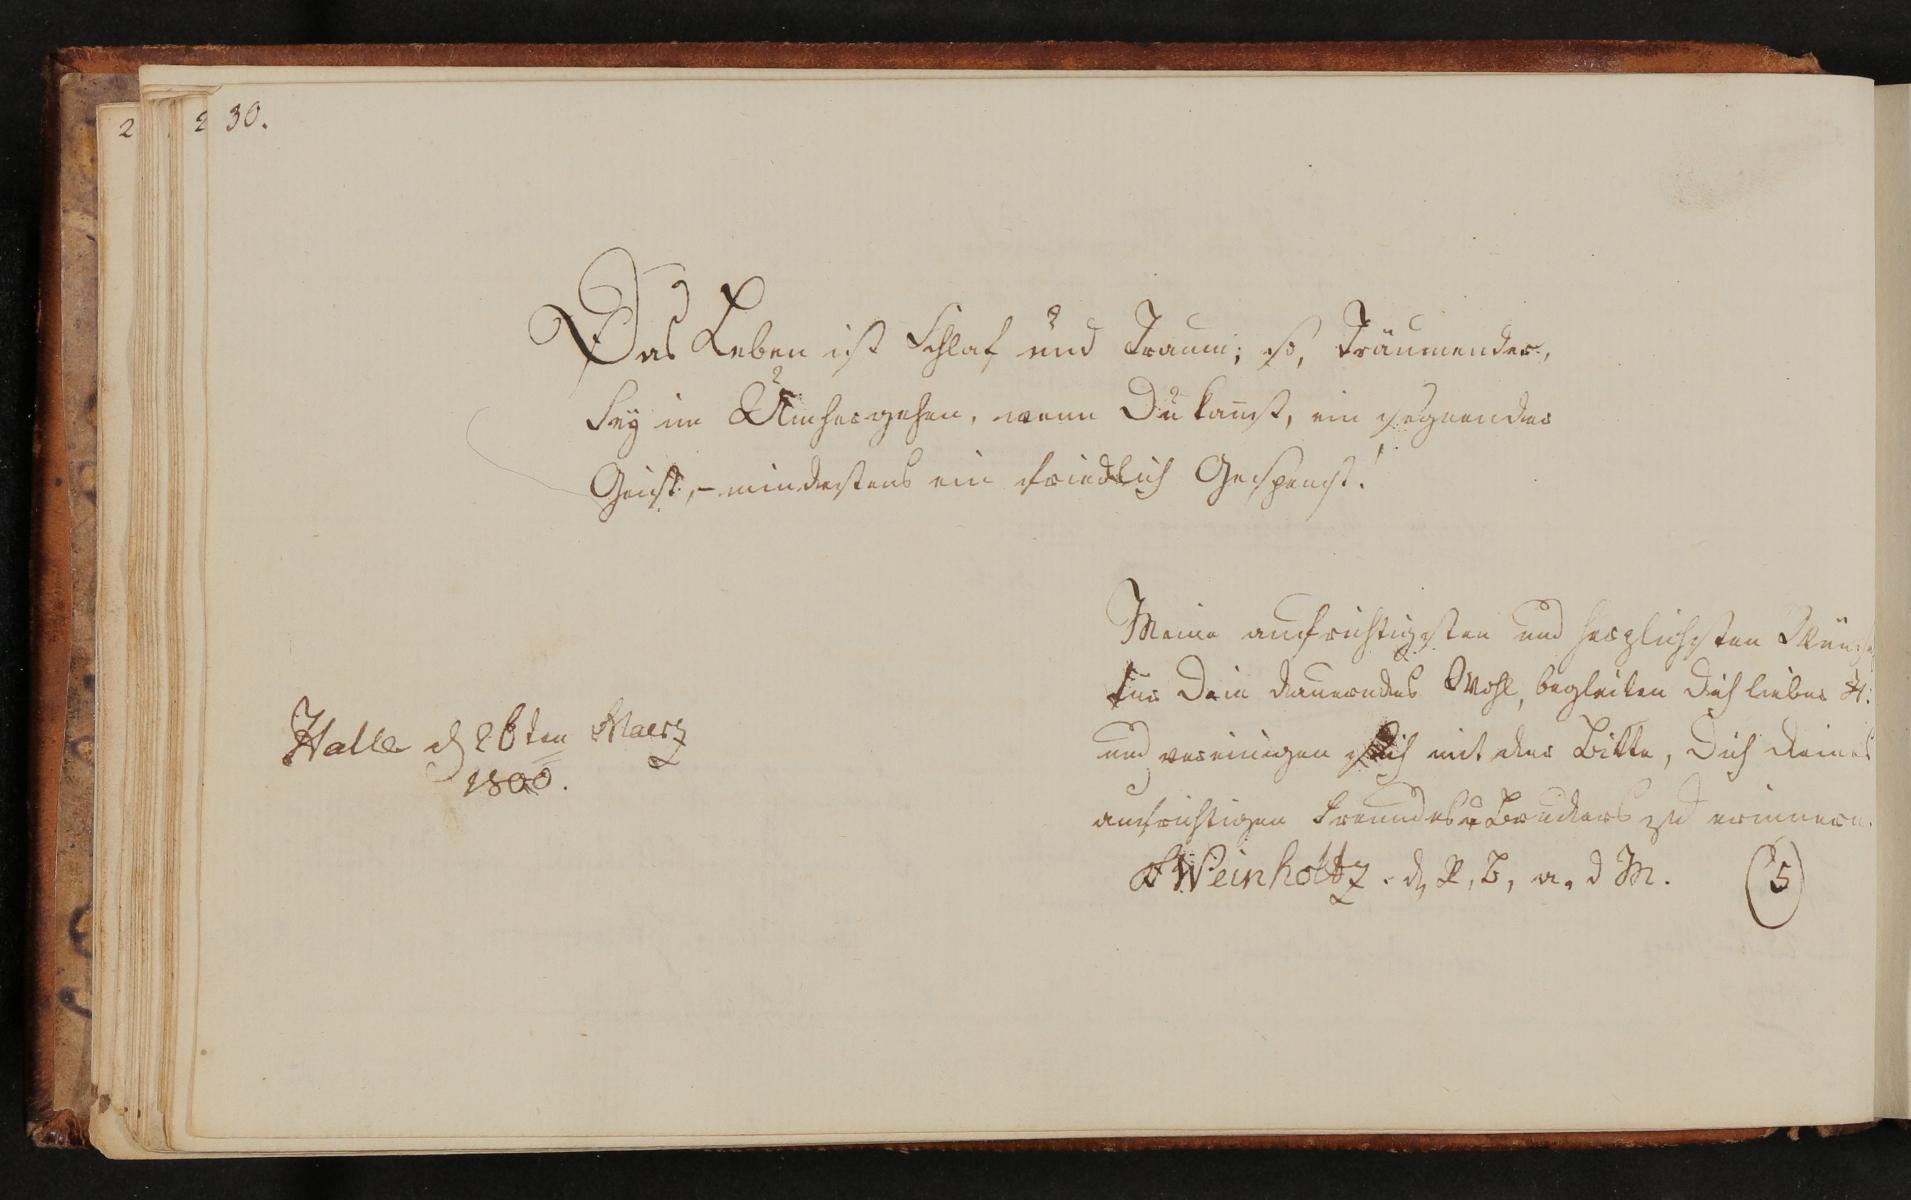 2
2
30.
Das Leben ist Schlaf und Traum; so, Träumender,
Sey im Umhergehen, wenn Du kanst, ein segnender
Geist, – mindestens ein friedlich Gespenst!
Meine aufrichtigsten und herzlichsten Wünsche
für Dein dauerndes Wohl, begleiten Dich lieber H:
und vereinigen sich mit der Bitte, Dich deines
aufrichtigen Freundes u Bruders zu erinnern.
Weinholtz. d. R. B. a. d M.
(5)
Halle d 26ten Maerz
1800.